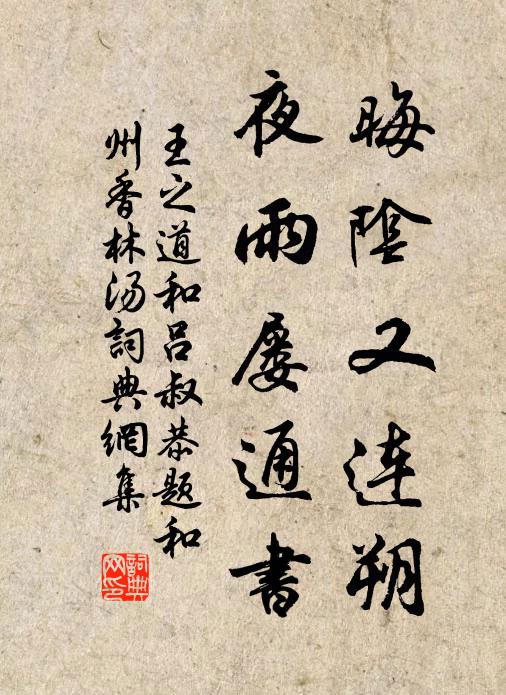 晦陰又連朔
夜雨屡通書
王之道和吕叔恭题和
州香林汤詞典網集
詞典
网印